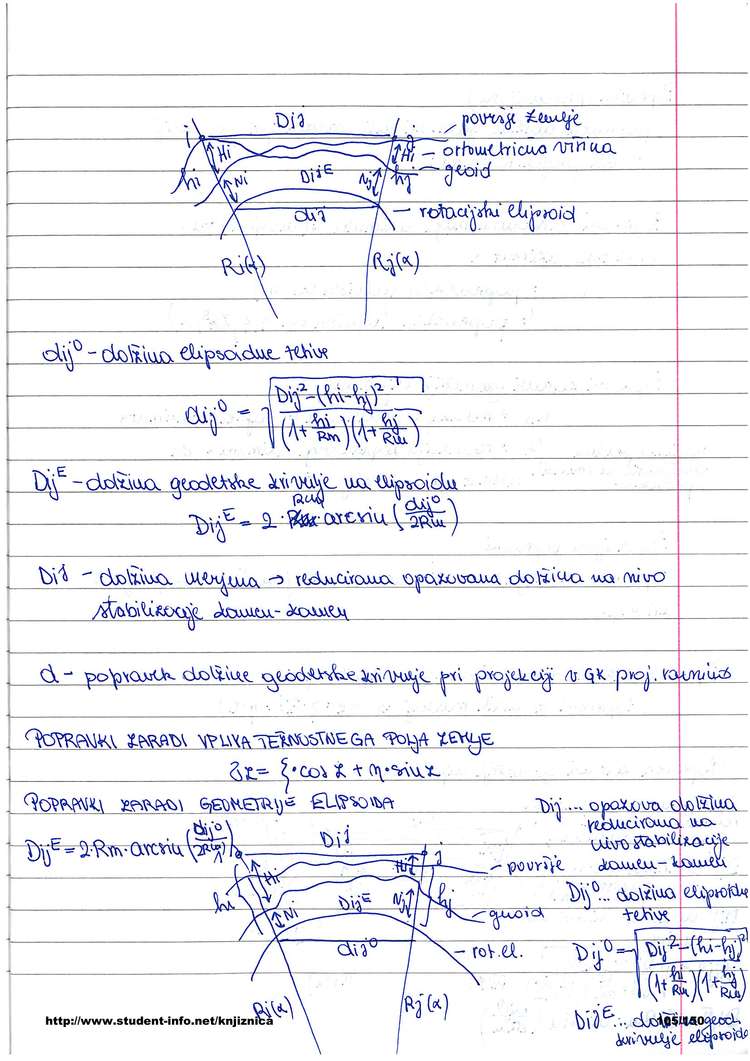 Dij
i
j
površje zemlje
Hi
Hi – ortometrična višina
hi
Ni
DijE
Nj
hj
geoid
dij
– rotacijski elipsoid
Ri(α)
Rj(α)
dij⁰ – dolžina elipsoidne tetive
dij⁰ = √((Dij² – (hi-hj)²) / ((1 + hi/Rm)(1 + hj/Rm)))
DijE – dolžina geodetske krivulje na elipsoidu
DijE = 2 · Rm arcsin (dij⁰/2Rm)
Dij – dolžina merjena → reducirana opazovana dolžina na nivo
stabilizacije kamen-kamen
d – popravek dolžine geodetske krivulje pri projekciji v GK proj. ravnino
POPRAVKI ZARADI VPLIVA TEŽNOSTNEGA POLJA ZEMLJE
ξ · cos z + η · sin z
POPRAVKI ZARADI GEOMETRIJE ELIPSOIDA
DijE = 2·Rm·arcsin (dij⁰/2Rm)
Dij
i
j
Hi
– površje
hi
Ni
DijE
Nj
hj
– geoid
dij⁰
– rot.el.
Ri(α)
Rj(α)
Dij ... opazova dolžina
reducirana na
nivo stabilizacije
kamen-kamen
Dij⁰ ... dolžina elipsoidne
tetive
Dij⁰ = √((Dij² – (hi-hj)²) / ((1 + hi/Rm)(1 + hj/Rm)))
DijE ... dolžina geod.
krivulje elipsoida
http://www.student-info.net/knjiznica
105/150